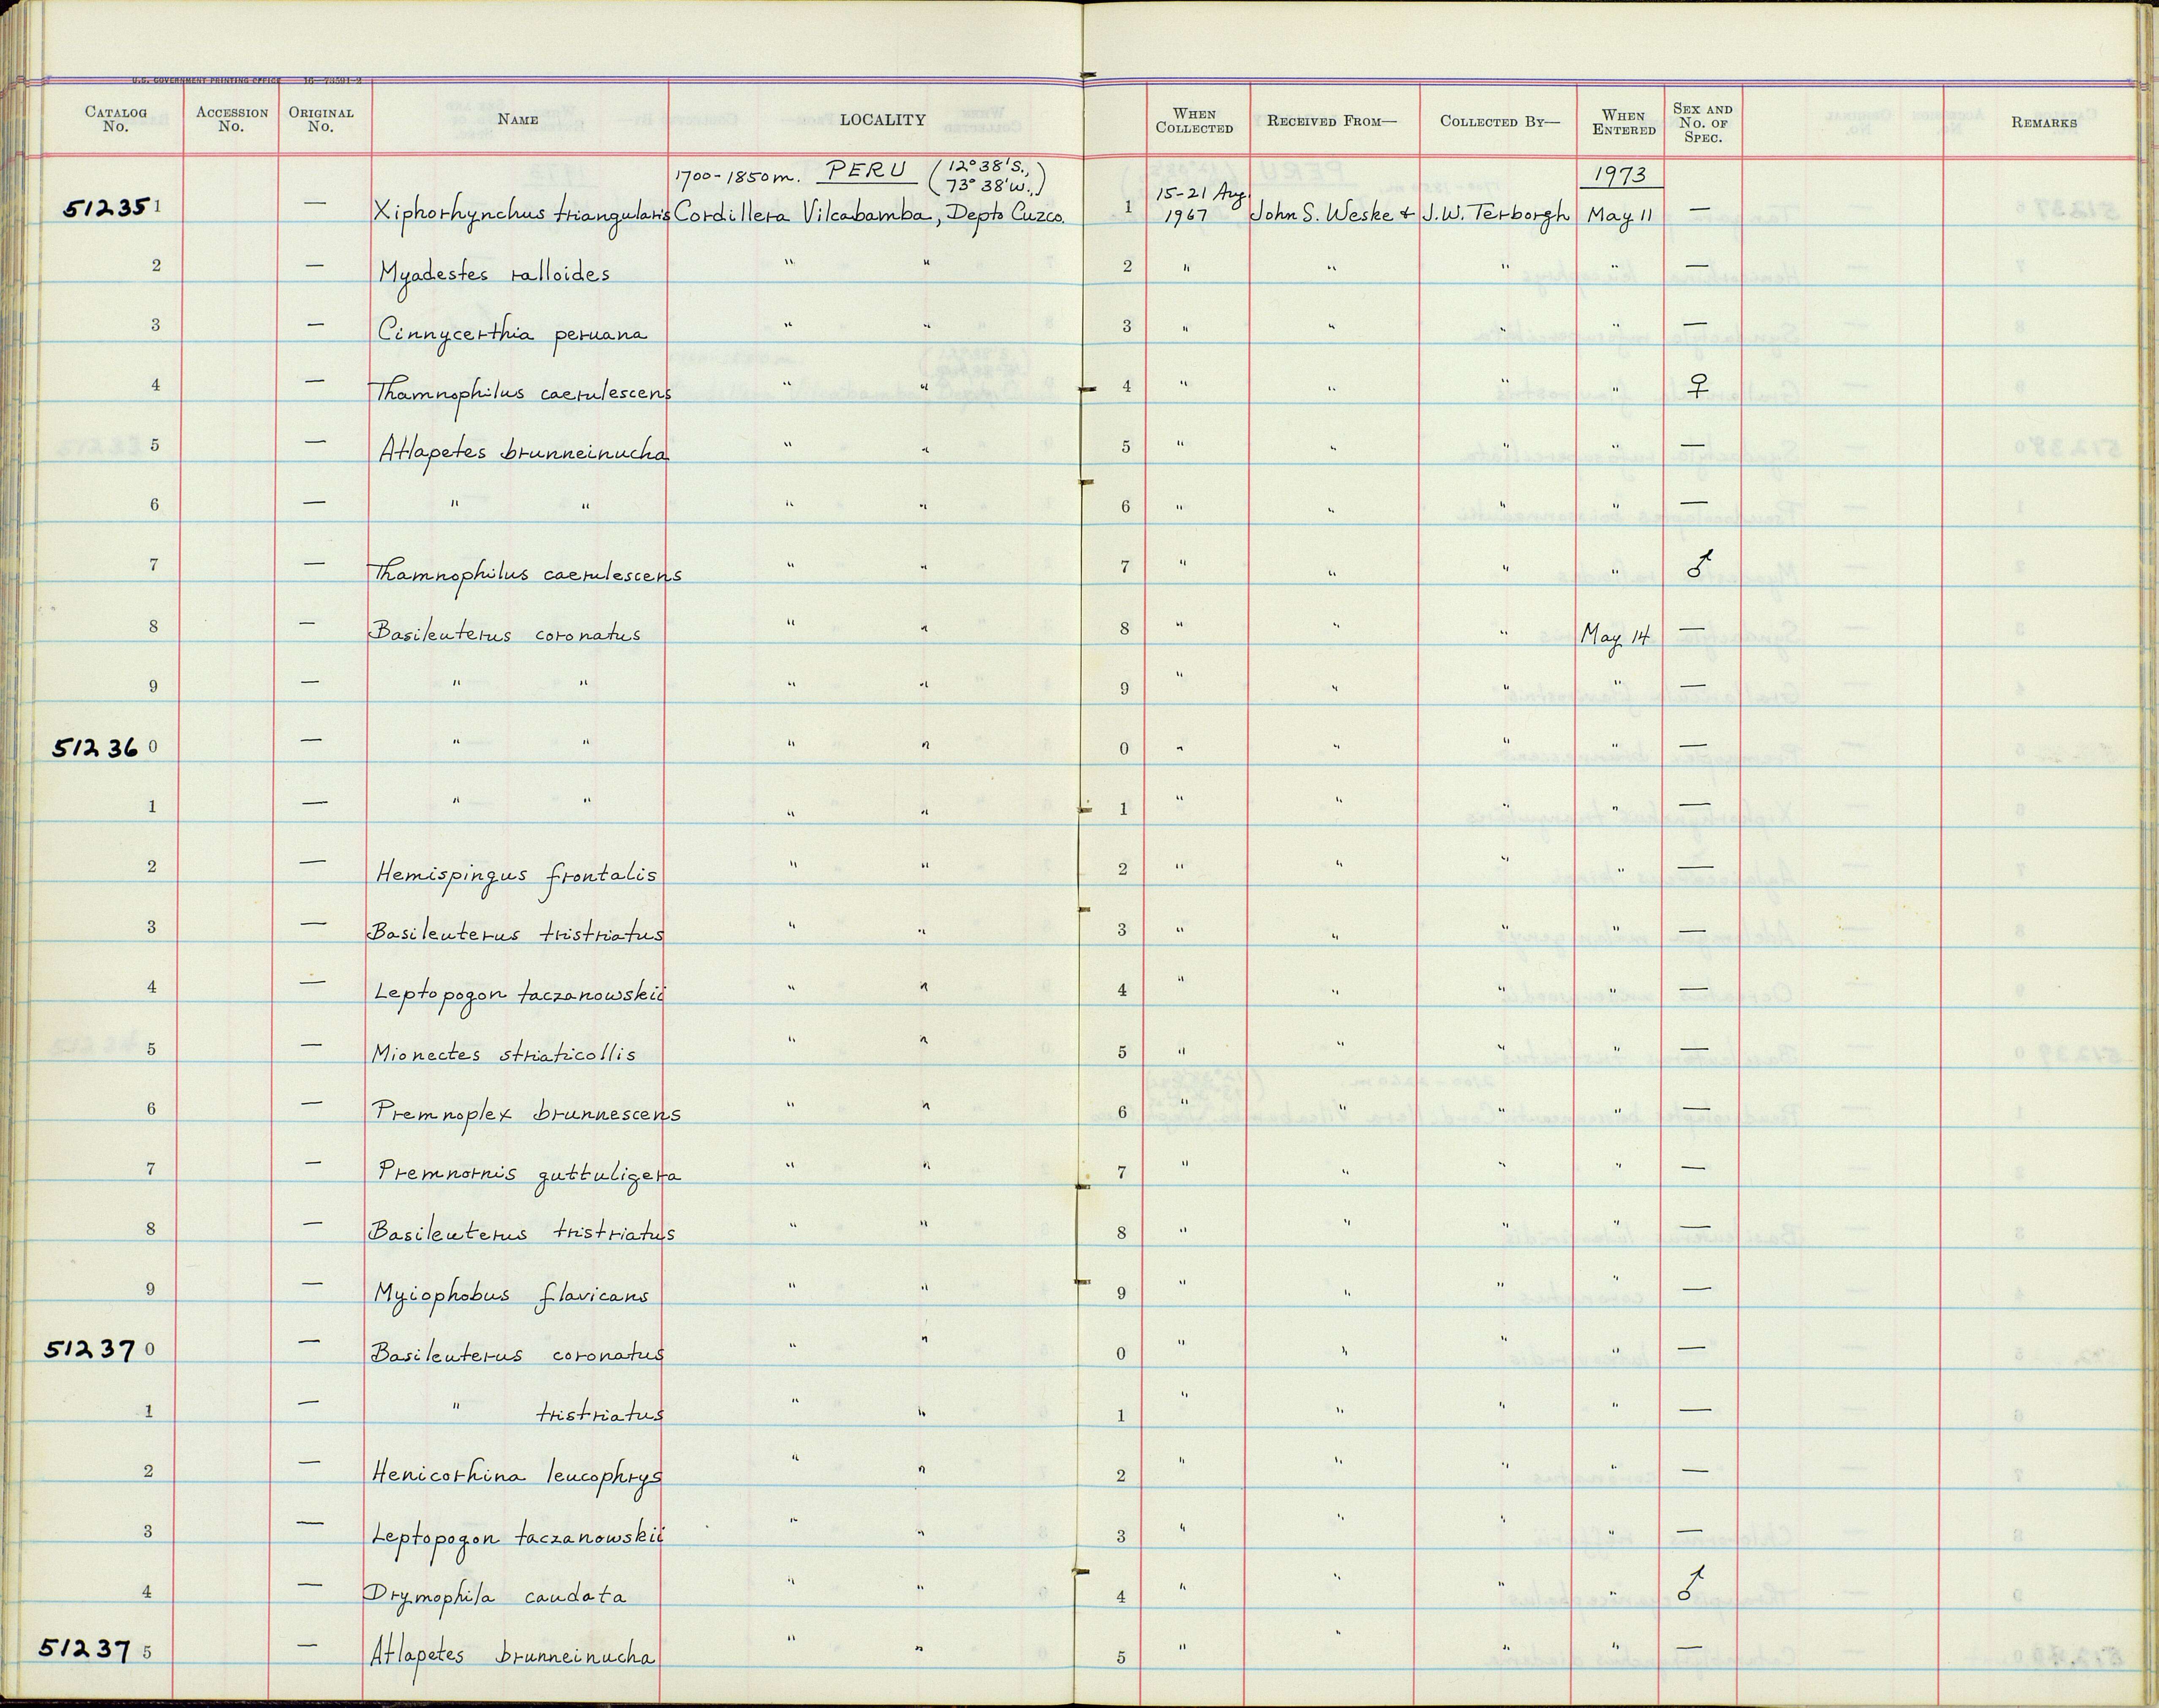 U.S. GOVERNMENT PRINTING OFFICE 16—73591-2
CATALOG No. ACCESSION No. ORIGINAL No. NAME LOCALITY WHEN COLLECTED RECEIVED FROM— COLLECTED BY— WHEN ENTERED SEX AND No. OF SPEC. REMARKS
1700-1850m. PERU (12°38'S., 73°38'W.,) 1973
512351 — Xiphorhynchus triangularis Cordillera Vilcabamba, Depto Cuzco. 1 15-21 Aug. 1967 John S. Weske & J.W. Terborgh May 11 —
2 — Myadestes ralloides " " 2 " " " " —
3 — Cinnycerthia peruana " " 3 " " " " —
4 — Thamnophilus caerulescens " " 4 " " " " ♀
5 — Atlapetes brunneinucha " " 5 " " " " —
6 — " " " " 6 " " " " —
7 — Thamnophilus caerulescens " " 7 " " " " ♂
8 — Basileuterus coronatus " " 8 " " " May 14 —
9 — " " " " 9 " " " " —
512360 — " " " " 0 " " " " —
1 — " " " " 1 " " " " —
2 — Hemispingus frontalis " " 2 " " " " —
3 — Basileuterus tristriatus " " 3 " " " " —
4 — Leptopogon taczanowskii " " 4 " " " " —
5 — Mionectes striaticollis " " 5 " " " " —
6 — Premnoplex brunnescens " " 6 " " " " —
7 — Premnornis guttuligera " " 7 " " " " —
8 — Basileuterus tristriatus " " 8 " " " " —
9 — Myiophobus flavicans " " 9 " " " " —
512370 — Basileuterus coronatus " " 0 " " " " —
1 — " tristriatus " " 1 " " " " —
2 — Henicorhina leucophrys " " 2 " " " " —
3 — Leptopogon taczanowskii " " 3 " " " " —
4 — Drymophila caudata " " 4 " " " " ♂
512375 — Atlapetes brunneinucha " " 5 " " " " —